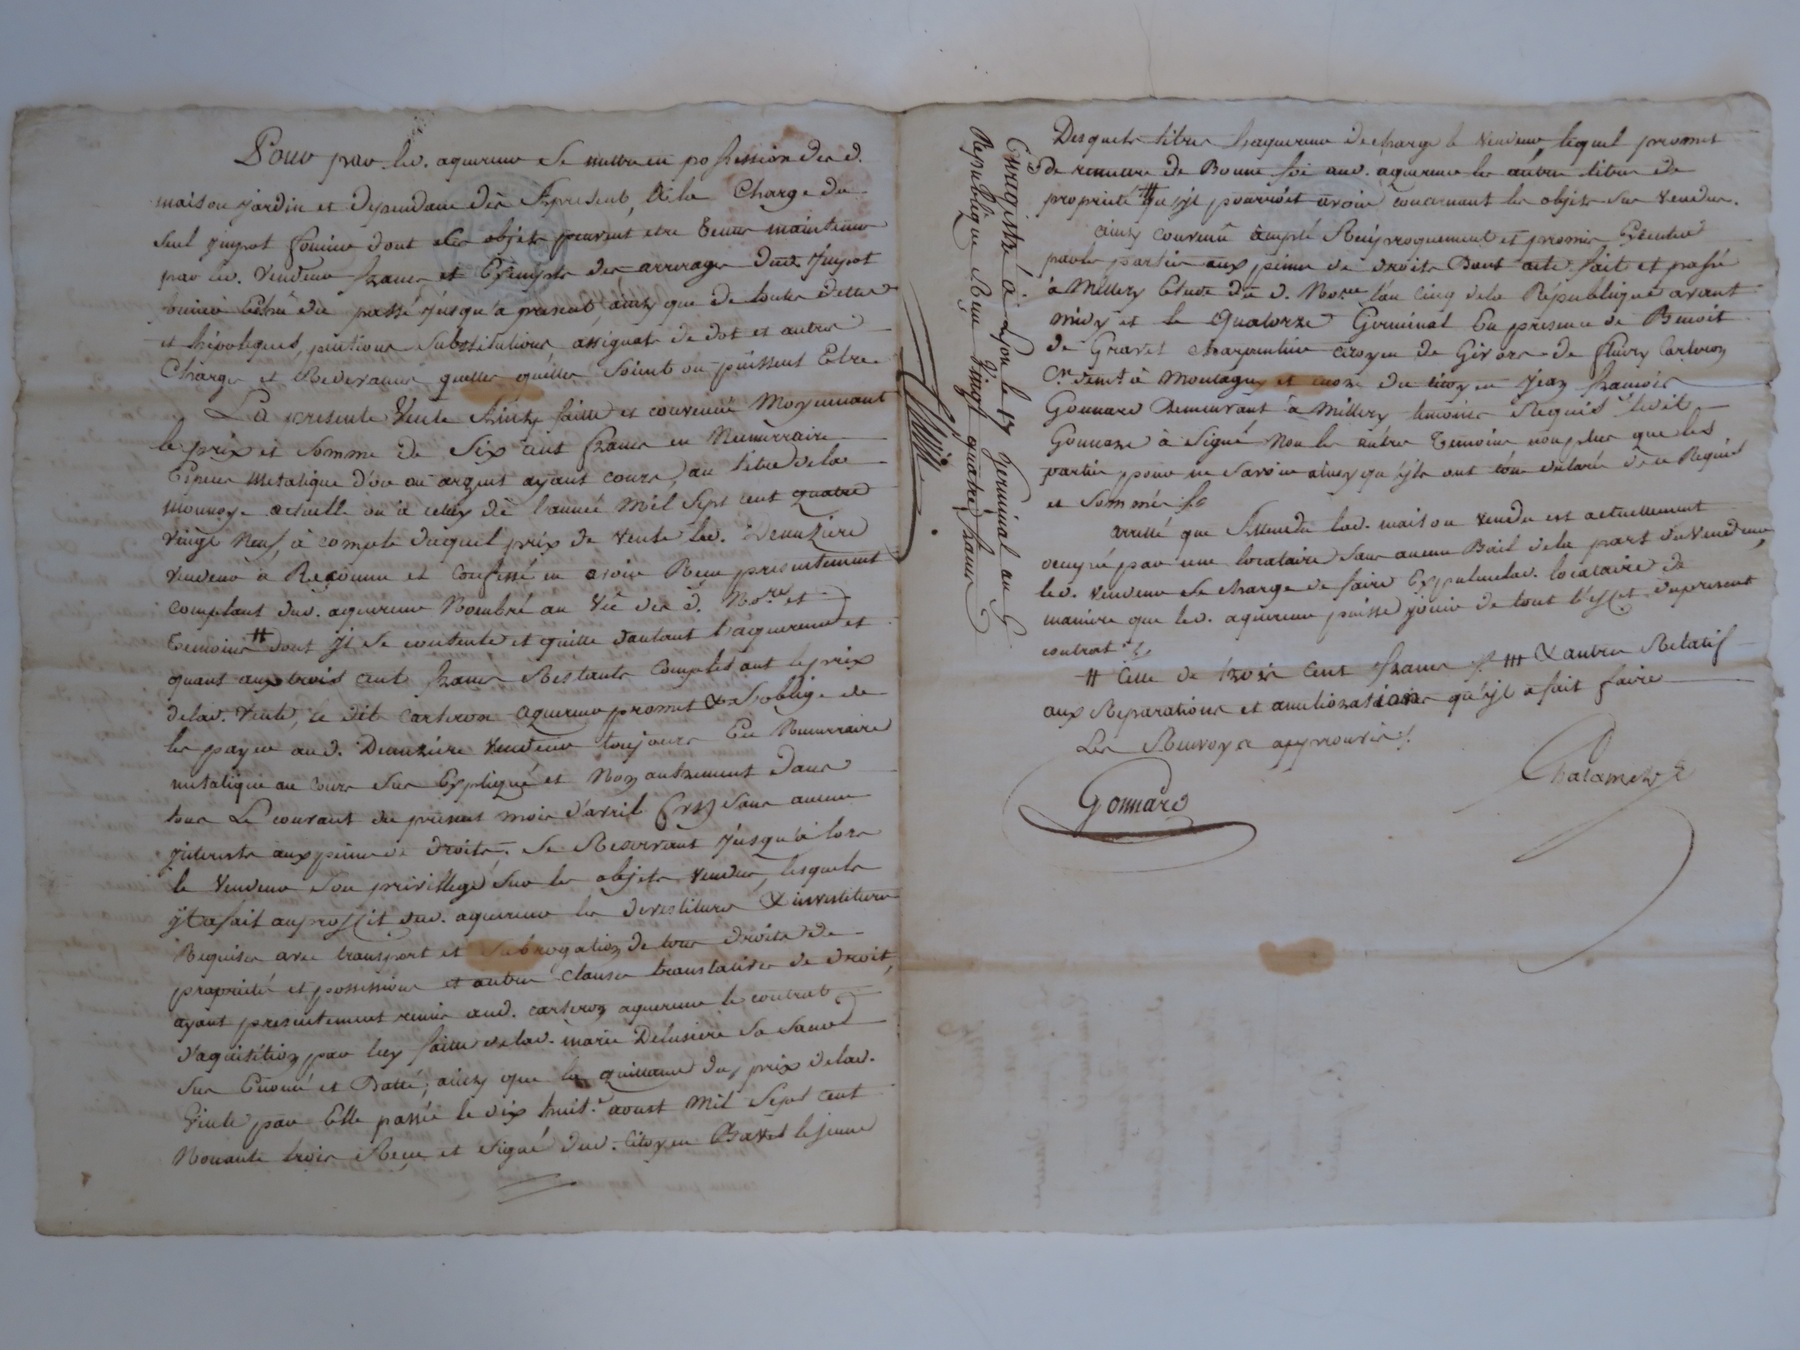 Pour par led. aquereur se mettre en possession des d.
maison jardin et dependance dès apresent, à la Charge du
seul jmpot foncier dont les objets peuvent etre tenus maintenus
par led. vendeur francs et Exempts des arrerages dud. jmpot
foncier Echus du passé jusqu'a present, ainsy que de toutes dettes
et hipoteques, pentions substitutions assignats de dot et autres
Charges et Redevances quelles quelles soient ou puissent Etre
La presente Vente ainsy faitte et convenue Moyennant
le prix et somme de Six cent francs en Numerraire
Especes Metalique d'or ou argent ayant cours, au titre de la
monnoye actuelle ou à celuy de l'année Mil Sept cent quatre
vingt Neuf, à compte duquel prix de vente led. Deuuziere
vendeur a Reconnu et Confessé en avoir Recu presentement
comptant dud. aquereur Nombré au Vû des d. No.re et
temoins # dont jl se contente et quitte d'autant l'aquereur et
quant aux trois cent francs Restants Completant le prix
de lad. vente, le dit carteron aquereur promet & s'oblige de
les payer aud. Deuuziere vendeur toujours En Numerraire
metalique au cours sus Expliqué et Non autrement dans
tout Le courant du present mois d'avril sans aucun
jnterests aux peines de droits. se Reservant jusqu'à lors
le vendeur son privillege sur les objets vendus, lesquels
jl a fait au proffit dud. aquereur les devestitures & investitures
Requises avec transport et subrogation de tous droits de
propriétés et possessions et autres clauses translatives de droit,
ayant presentement remis aud. carteron aquereur le contrat
d'aquisition par luy faitte de lad. marie Delusiere sa sœur
sus Enoncé et Datté, ainsy que la quittance du prix de lad.
Vente par Elle passée le dix huit.e aoust Mil Sept cent
Nonante trois Recue et signé dud. citoyen Gravet le jeune
Enregistré à Lyon le 17 Germinal an 5
Republique Reçu vingt quatre francs
Desquels titres l'aquereur decharge le vendeur lequel promet
de remettre de Bonne foi aud. aquereur les autres titres de
propriété # qu'jl pourroit avoir concernant les objets sus vendus.
ainsy convenu accepté Reciproquement et promis Executer
par les parties aux peines de droits Dont acte fait et passé
à Millery Etude du d. No.re l'an cinq de la République avant
midy et le Quatorze Germinal En presence de Benoit
de Gravet charpentier citoyen de Givors de fleury Carteron
C.n dem.t à Montagny et encore du citoyen jean francois
Gonnard Demeurant à Millery temoins Requis ledit
Gonnard à signé Non les autres temoins non plus que les
parties pour ne savoir ainsy qu'jls ont tous declaré de ce Requis
et sommés
arrêté que attendu lad. maison vendu est actuellement
occupée par une locataire sans aucun Bail de la part du vendeur
led. vendeur se charge de faire Expulser lad. locataire de
maniere que led. aquereur puisse jouir de tout l'effet du present
contrat
# celle de trois cent francs # & autres Relatifs
aux Reparations et ameliorations qu'jl a fait faire
Les Renvoys approuvés
Gonnard
Chalamel